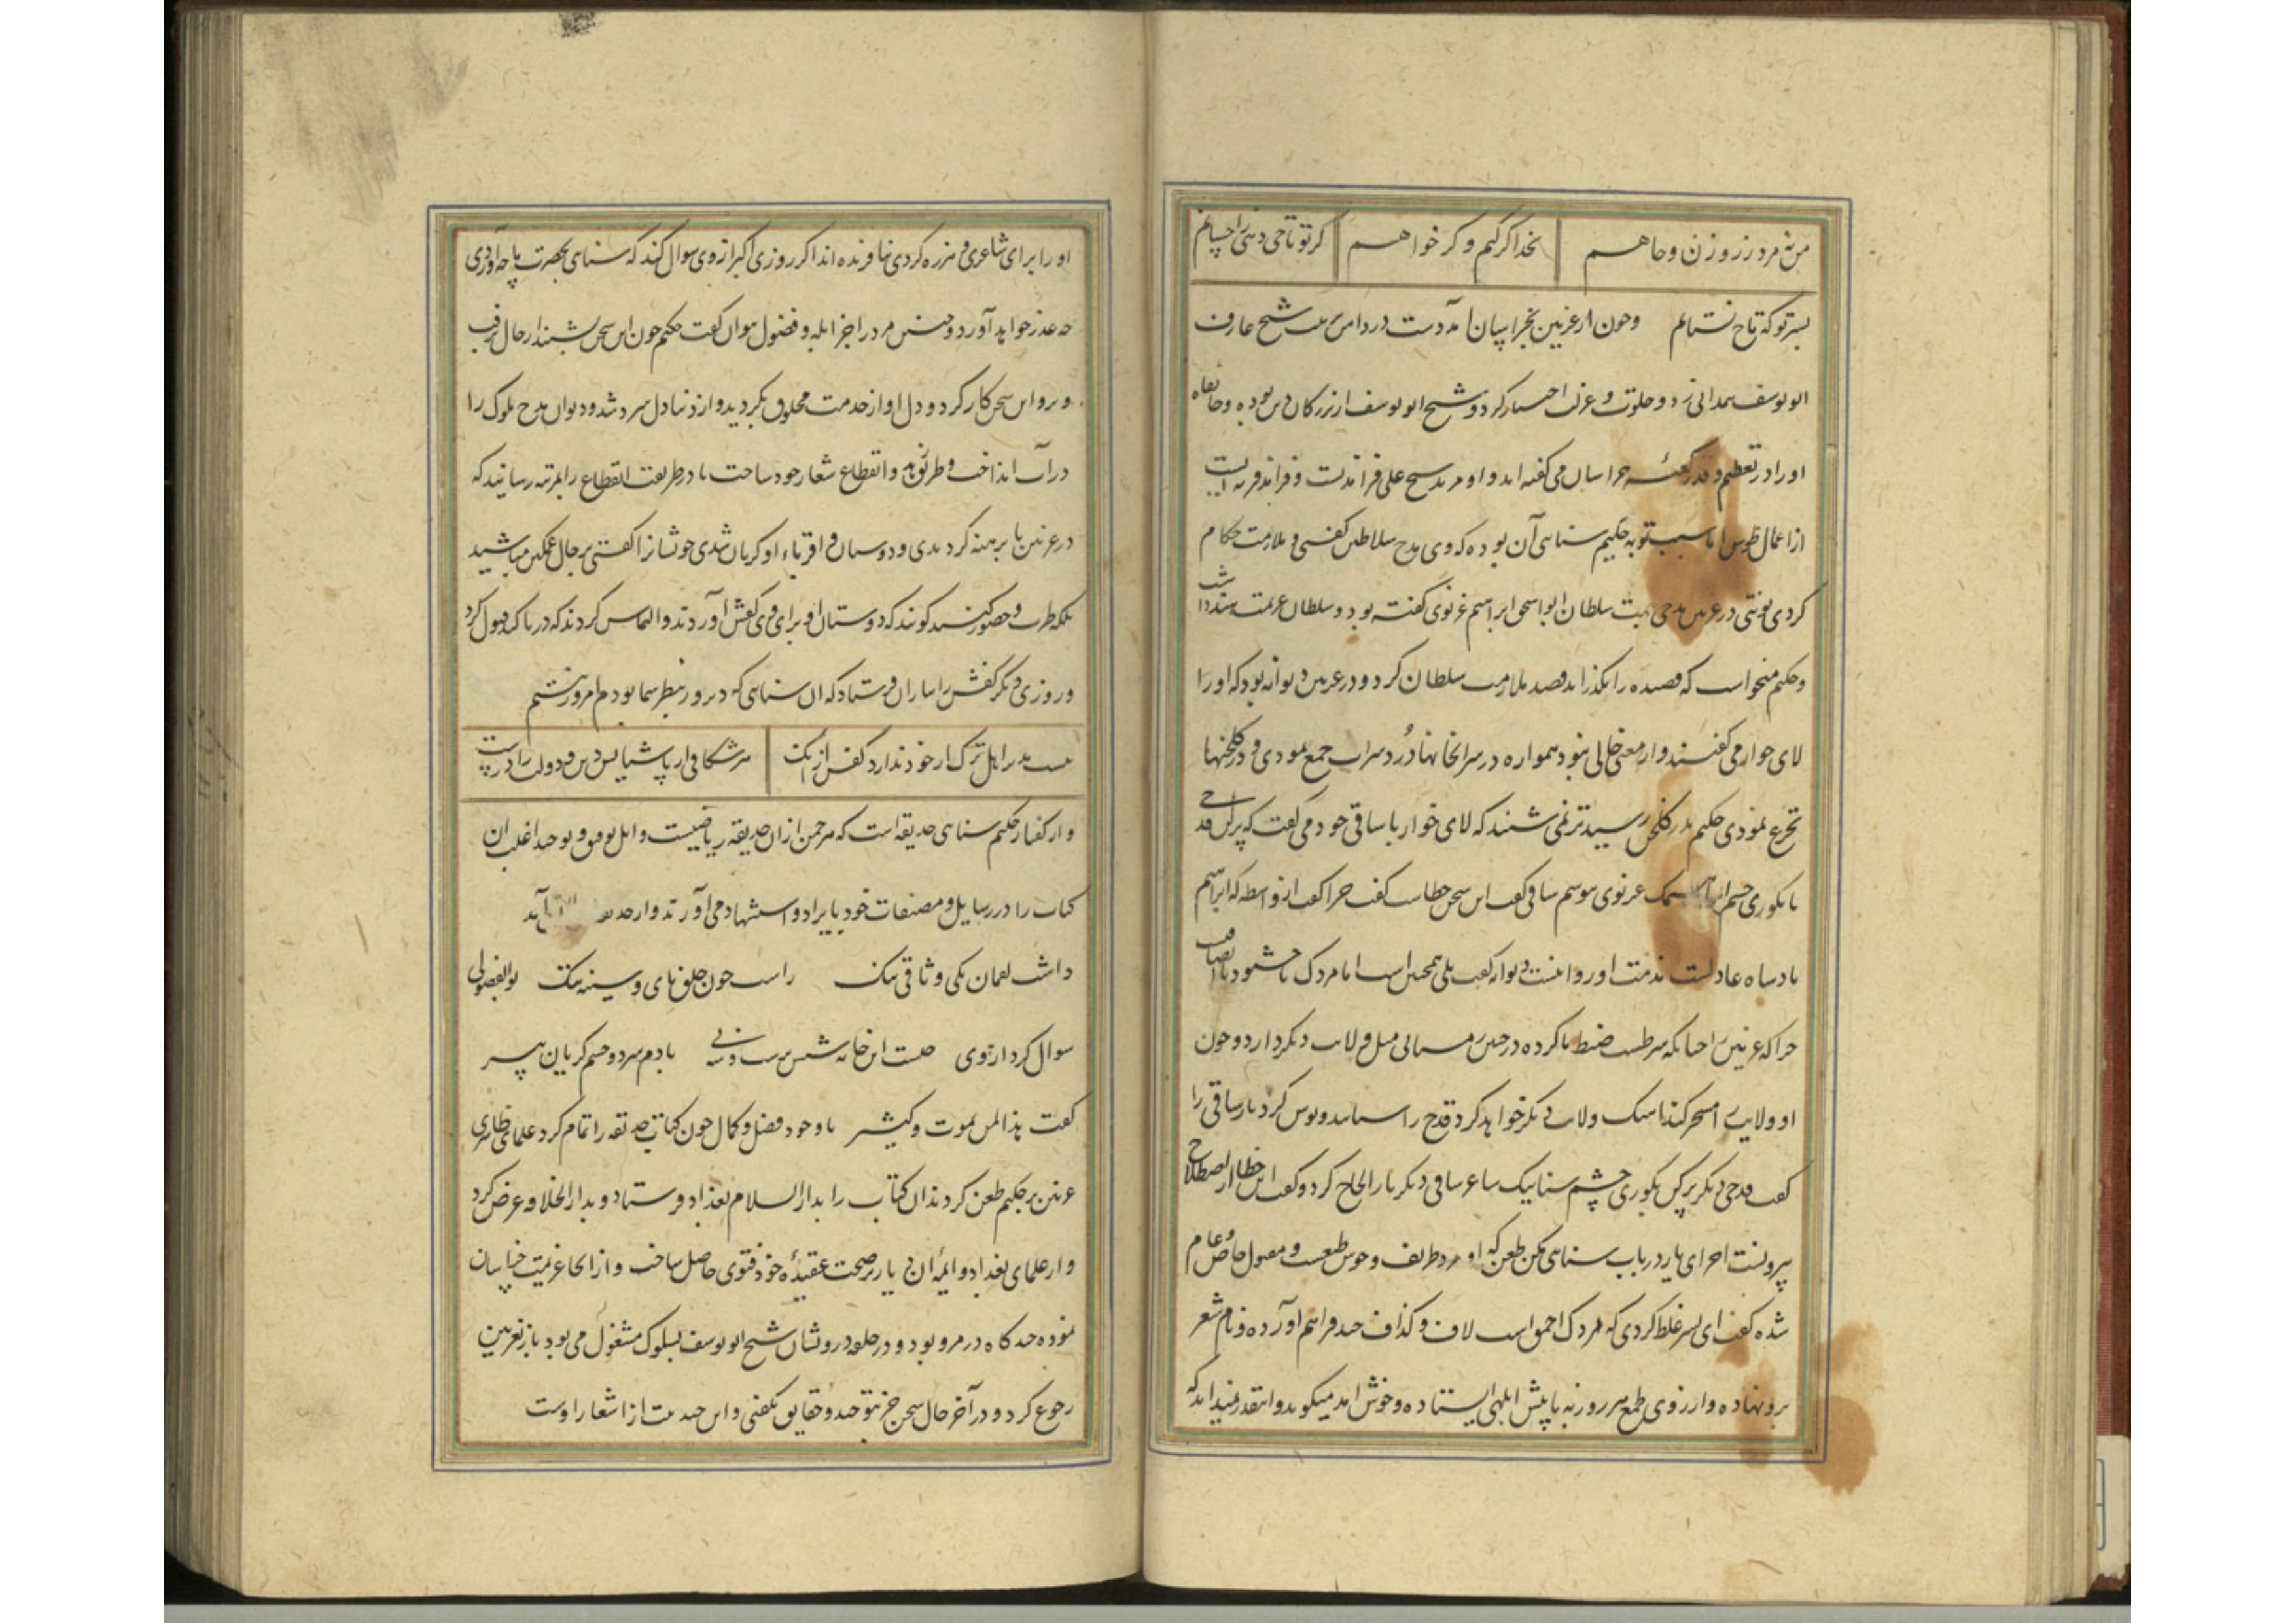 من نه مرد زر و زن و جاهم بخدا گر کنم و گر خواهم گر تو تاجی دهی ز احسانم
بسر تو که تاج نستانم و چون از غزنین بخراسان آمد دست در دامن تربیت شیخ عارف
ابو یوسف همدانی زد و خلوت و عزلت اختیار کرد و شیخ ابو یوسف از بزرگان دین بوده و خانقاه
او را در تعظیم و قدر کعبه خراسان می گفته اند و او مرید شیخ علی فراندیست و فراند قریه ایست
از اعمال طوس اما سبب توبه حکیم سنایی آن بوده که وی مدح سلاطین گفتی و ملازمت حکام
کردی نوبتی در غزنین مدحی جهت سلطان ابو اسحق ابراهیم غزنوی گفته بود و سلطان عزیمت هند داشت
و حکیم میخواست که قصیده را بگذراند قصد ملازمت سلطان کرد و در غزنین دیوانه بود که او را
لای خوار می گفتند و از معنی خالی نبود همواره در شرابخانها درد شراب جمع نمودی و در گلخنها
تجرع نمودی حکیم بدر گلخن رسید ترنمی شنید که لای خوار با ساقی خود می گفت که پر کن قدحی
تا بکوری چشم ابراهیمک غزنوی بنوشم ساقی گفت این سخن خطاست گفت چرا گفت از واسطه که ابراهیم
پادشاه عادلست مذمت او روا نیست دیوانه گفت بلی همچنین است اما مردک ناخشنود ناانصاف
چرا که غزنین را چنانکه شرطست ضبط ناکرده در چنین زمستانی میل ولایت دیگر دارد و چون
او ولایت را مسخر کند آهنگ ولایت دیگر خواهد کرد قدح را ستاند و نوش کرد باز ساقی را
گفت قدحی دیگر پر کن بکوری چشم سناییک شاعر ساقی دیگر بار الحاح کرد و گفت این خطا از اصطلاح
بیرونست آخر ای یار در باب سنایی مکن طعن که او مرد ظریف و خوش طبعست و مقبول خاص و عام
شده گفت ای پسر غلط کردی که مردک احمق است لاف و گذاف چند فراهم آورده و نام شعر
برو نهاده و از روی طمع هر روز به پا پیش ابلهی ایستاده و خوش آمد میگوید و اینقدر نمیداند که
او را برای شاعری و هرزه گردی نیافریده اند اگر روز عرض اکبر از وی سوال کنند که سنایی بحضرت ما چه آوردی
چه عذر خواهد آورد و چنین مرد را جز ابله و فضول نتوان گفت حکیم چون این سخن بشنید از حال برفت
و برو این سخن کار کرد و دل او از خدمت مخلوق بگردید و از دنیا دل سرد شد و دیوان مدح ملوک را
در آب انداخت و طریق زهد و انقطاع شعار خود ساخت تا در طریقت انقطاع را بمرتبه رسانید که
در غزنین پا برهنه گردیدی و دوستان و اقرباء او گریان شدی خویشانرا گفتی بر حال غمگین مباشید
بلکه طرب و حضور کنید گویند که دوستان او برای وی کفش آوردند و التماس کردند که در پا کند قبول کرد
و روزی دیگر کفش را بیاران فرستاد که آن سنایی که دیروز بنظر شما بود من امروز نیستم
نیست بند بر اهل ترک ار خود ندارد کفش از آنک هر شکافی از پاشنه ایشان دین و دولت را در است
و از گفتار حکیم سنایی حدیقه است که هر چمن از آن حدیقه ریاضیست و اهل توفیق و توحید اغلب آن
کتاب را در رسایل و مصنفات خود بایراد و استشهاد می آورند و از حدیقه
داشت لقمان یکی وثاقی تنگ راست چون حلق نای و سینه چنگ بوالفضولی
سوال کرد از وی چیست این خانه شش بدست و سه پی با دم سرد و چشم گریان پیر
گفت هذا لمن یموت و کثیر با وجود فضل و کمال چون کتاب حدیقه را تمام کرد علمای ظاهری
غزنین بر حکیم طعن کردند آن کتاب را بدارالسلام بغداد فرستاد و بدارالخلافه عرض کرد
و از علمای بغداد و ائمه آن دیار بر صحت عقیده خود فتوی حاصل ساخت و از آنجا عزیمت خراسان
نموده چند گاه در مرو بود و در حلقه درویشان شیخ ابو یوسف بسلوک مشغول می بود باز بغزنین
رجوع کرد و در آخر حال سخن جز بتوحید و حقایق نگفتی و این چند بیت از اشعار اوست